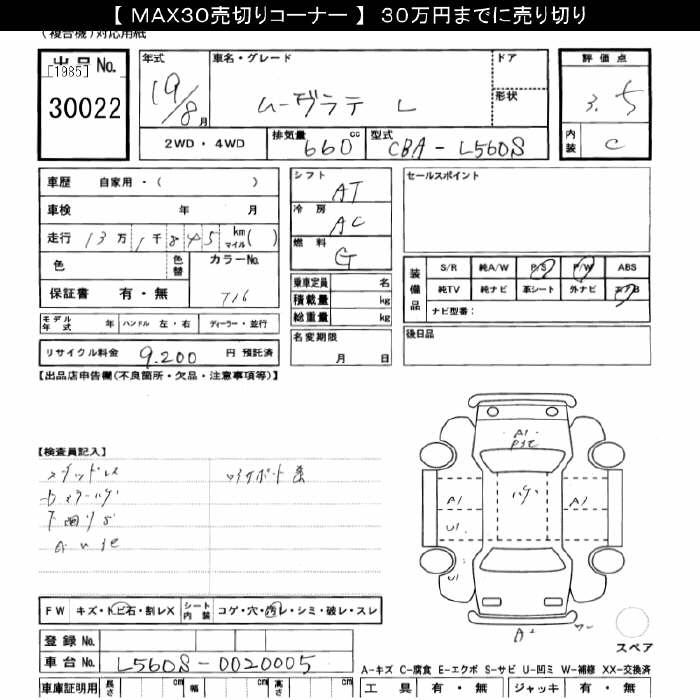 【 MAX30売切りコーナー 】 30万円までに売り切り
(複合機)対応用紙
出品No. [1985] 30022
年式 19/8月
車名・グレード ムーヴラテ L
ドア
形状
評価点 3.5
内装 C
2WD・4WD
排気量 660 cc
型式 CBA-L560S
車歴 自家用・( )
車検 年 月
走行 13万1千845 km マイル( )
色 色替 カラーNo. T16
保証書 有・無
シフト AT
冷房 AC
燃料 G
乗車定員 名
積載量 kg
総重量 kg
名変期限 月 日
セールスポイント
装備品 S/R 純A/W P/S P/W ABS
純TV 純ナビ 革シート 外ナビ エアB
ナビ型番:
後日品
モデル年式 年 ハンドル 左・右 ディーラー・並行
リサイクル料金 9,200 円 預託済
【出品店申告欄(不良箇所・欠品・注意事項等)】
【検査員記入】
下廻りS
FW キズ・トビ石・割レX シート内装 コゲ・穴・汚レ・シミ・破レ・スレ
登録No.
車台No. L560S-0020005
車庫証明用 長さ cm 幅 cm 高さ cm
A1
ハゲ
A1
A1
U1
U1
A2
スペア
A-キズ C-腐食 E-エクボ S-サビ U-凹ミ W-補修 XX-交換済
工具 有・無 ジャッキ 有・無